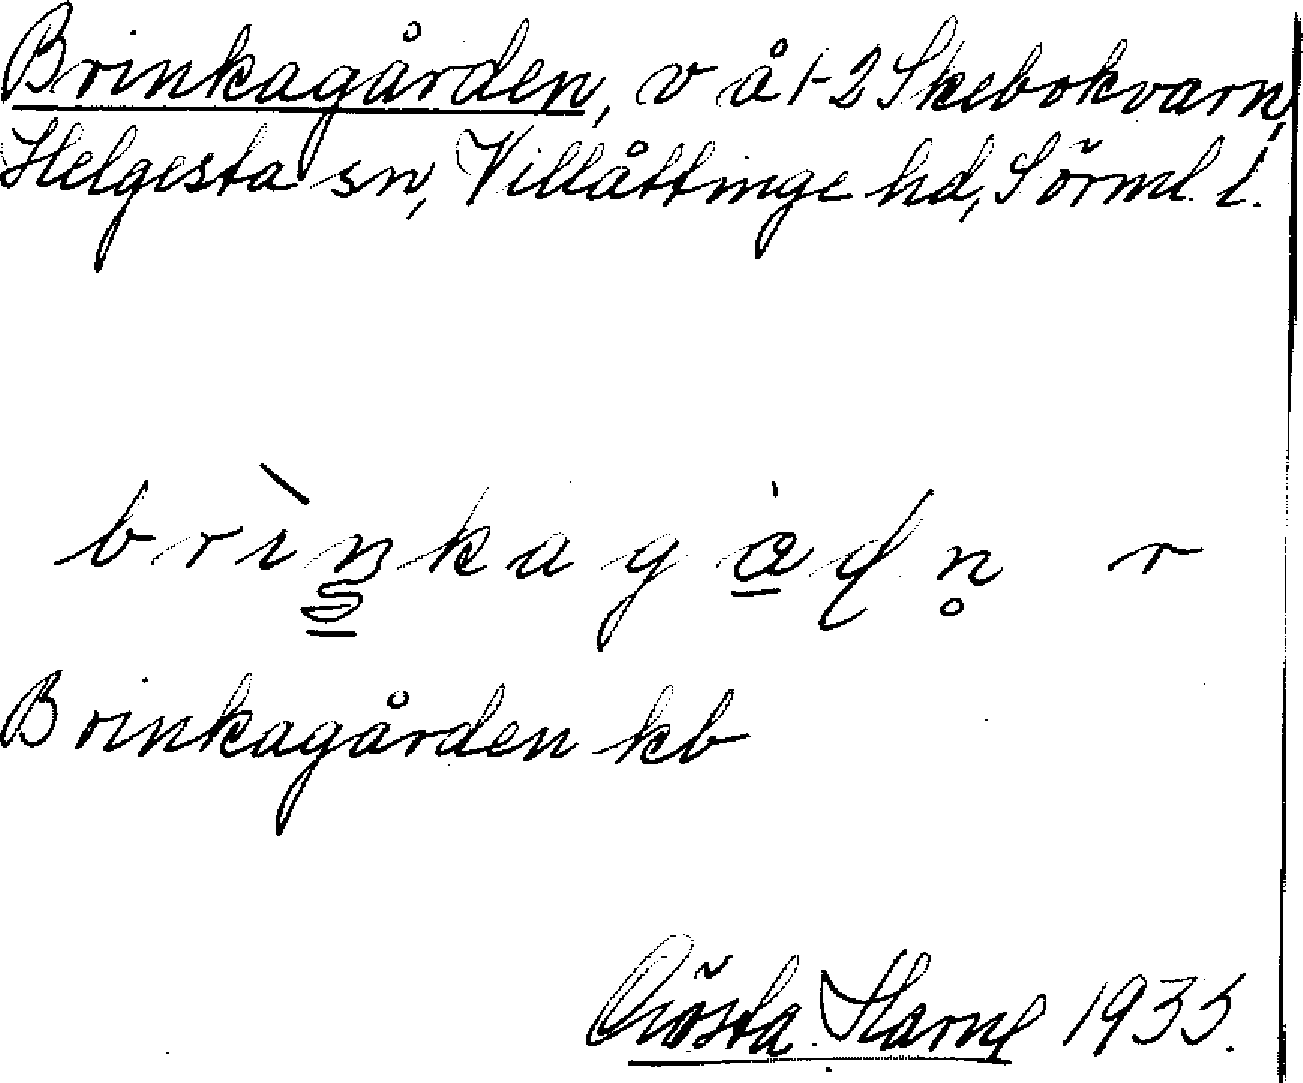 Brinkagården, v å 1-2 Skebokvarn,
Helgesta sn, Villåttinge hd, Sörml. l.
brìnkagàdn̥ r
Brinkagården kb
Gösta 1935.